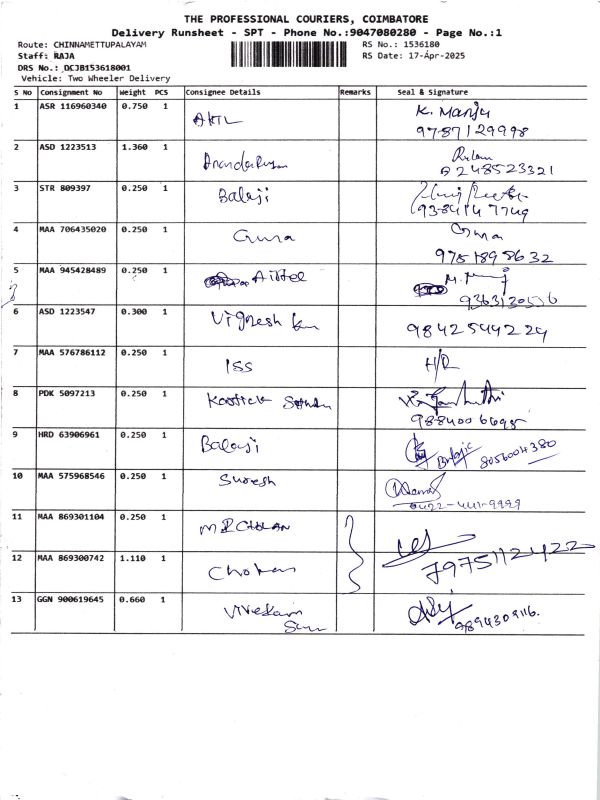 THE PROFESSIONAL COURIERS, COIMBATORE
Delivery Runsheet - SPT - Phone No.:9047080280 - Page No.:1
Route: CHINNAMETTUPALAYAM
Staff: RAJA
DRS No.: DCJB153618001
Vehicle: Two Wheeler Delivery
RS No.: 1536180
RS Date: 17-Apr-2025
S No Consignment No Weight PCS Consignee Details Remarks Seal & Signature
1 ASR 116960340 0.750 1 K. Manju
9787129998
2 ASD 1223513 1.360 1
3 STR 809397 0.250 1 Balaji
4 MAA 706435020 0.250 1 Guna Guna
9751895632
5 MAA 945428489 0.250 1 Airtel
6 ASD 1223547 0.300 1 Vignesh 9842544224
7 MAA 576786112 0.250 1 ISS H/R
8 PDK 5097213 0.250 1
9 HRD 63906961 0.250 1 Balaji 8056004380
10 MAA 575968546 0.250 1 Suresh
0422-441-9999
11 MAA 869301104 0.250 1
12 MAA 869300742 1.110 1 7975112422
13 GGN 900619645 0.660 1 9894309116.